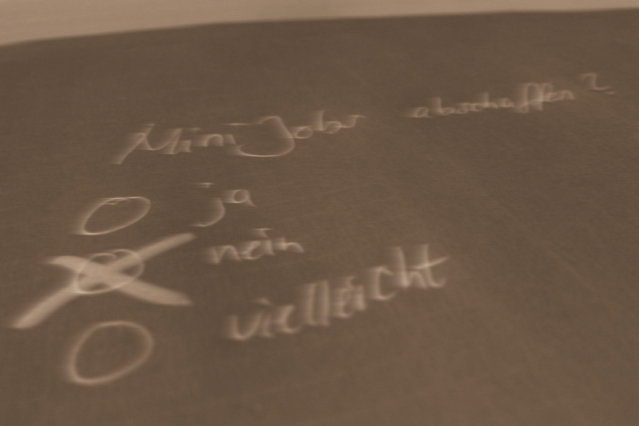 Mini Jobs abschaffen?
ja
nein
vielleicht